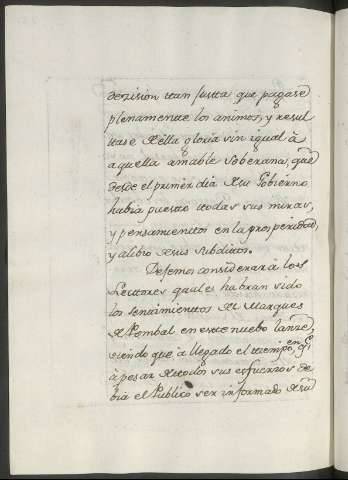 decision ttan justta que pagase
plenamentte los animos, y resul
ttase de ella gloria sin igual à
aquella amable soberana, que
desde el primer dia de su Gobierno
habia puestto ttodas sus miras,
y pensamienttos en la prosperidad,
y alibio de sus subdittos.
Dejemos considerar à los
Lecttores quales habran sido
los senttimienttos del Marques
de Pombal en estte nuebo lanze,
siendo que à llegado el ttiempo, en qe.
à pesar de ttodos sus esfuerzos de
bia el Publico ser informado de su